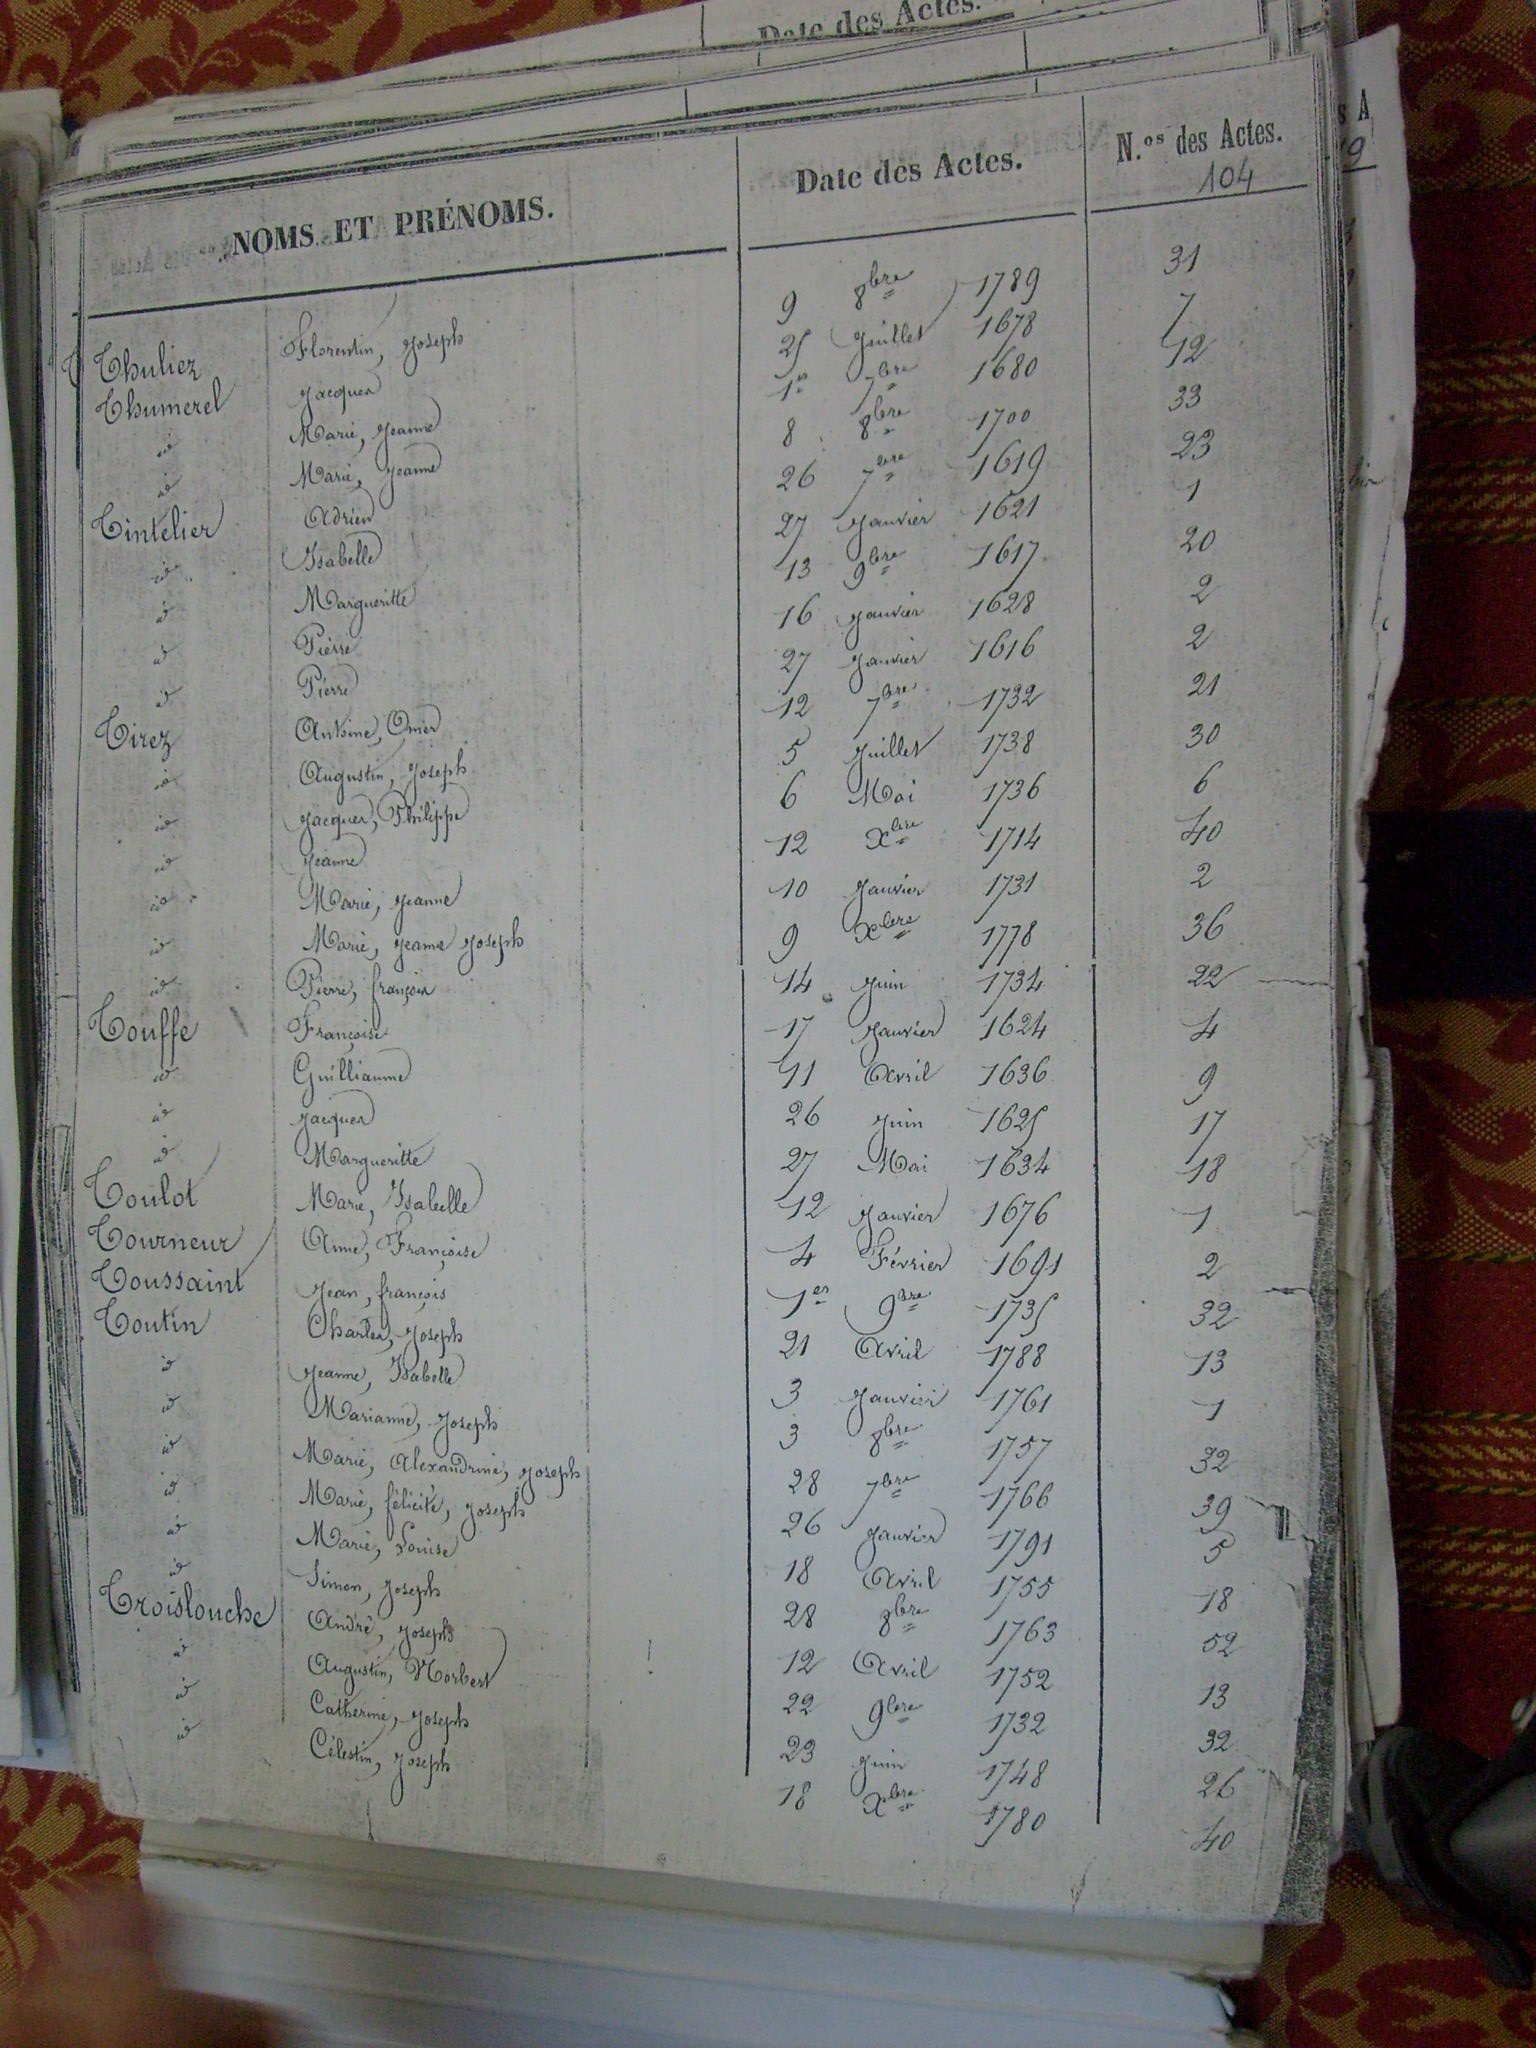 Date des Actes.
NOMS ET PRÉNOMS. Date des Actes. N.os des Actes.
104
Thuliez Florentin, Joseph 9 8bre 1789 31
Thumerel Jacques 25 Juillet 1678 7
id Marie, Jeanne 1er 7bre 1680 12
id Marie, Jeanne 8 8bre 1700 33
Tintelier Adrien 26 7bre 1619 23
id Isabelle 27 Janvier 1621 1
id Margueritte 13 9bre 1617 20
id Pierre 16 Janvier 1628 2
id Pierre 27 Janvier 1616 2
Tirez Antoine, Omer 12 7bre 1732 21
id Augustin, Joseph 5 Juillet 1738 30
id Jacques, Philippe 6 Mai 1736 6
id Jeanne 12 Xbre 1714 40
id Marie, Jeanne 10 Janvier 1731 2
id Marie, Jeanne Joseph 9 Xbre 1778 36
id Pierre, françois 14 Juin 1734 22
Touffe Françoise 17 Janvier 1624 4
id Guilliaume 11 Avril 1636 9
id Jacques 26 Juin 1625 17
id Margueritte 27 Mai 1634 18
Toulot Marie, Isabelle 12 Janvier 1676 1
Tourneur Anne, Françoise 4 Février 1691 2
Toussaint Jean, françois 1er 9bre 1735 32
Toutin Charles, Joseph 21 Avril 1788 13
id Jeanne, Isabelle 3 Janvier 1761 1
id Marianne, Joseph 3 8bre 1757 32
id Marie, Alexandrine, Joseph 28 7bre 1766 39
id Marie, félicité, Joseph 26 Janvier 1791 5
id Marie, Louise 18 Avril 1755 18
id Simon, Joseph 28 8bre 1763 52
Troislouche André, Joseph 12 Avril 1752 13
id Augustin, Norbert 22 9bre 1732 32
id Catherine, Joseph 23 Juin 1748 26
id Célestin, Joseph 18 Xbre 1780 40